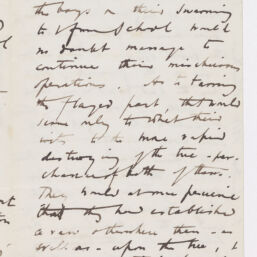 the boys on their swarming
to & from School would
no doubt manage to
continue their mischievous
operations. As to tarring
the flayed part, that would
seem only to whet their
wits to the more rapid
destroying of the tree - per-
chance of both of them.
They would at once perceive
that they had established
a raw otherwhere then - as
well as - upon the tree,